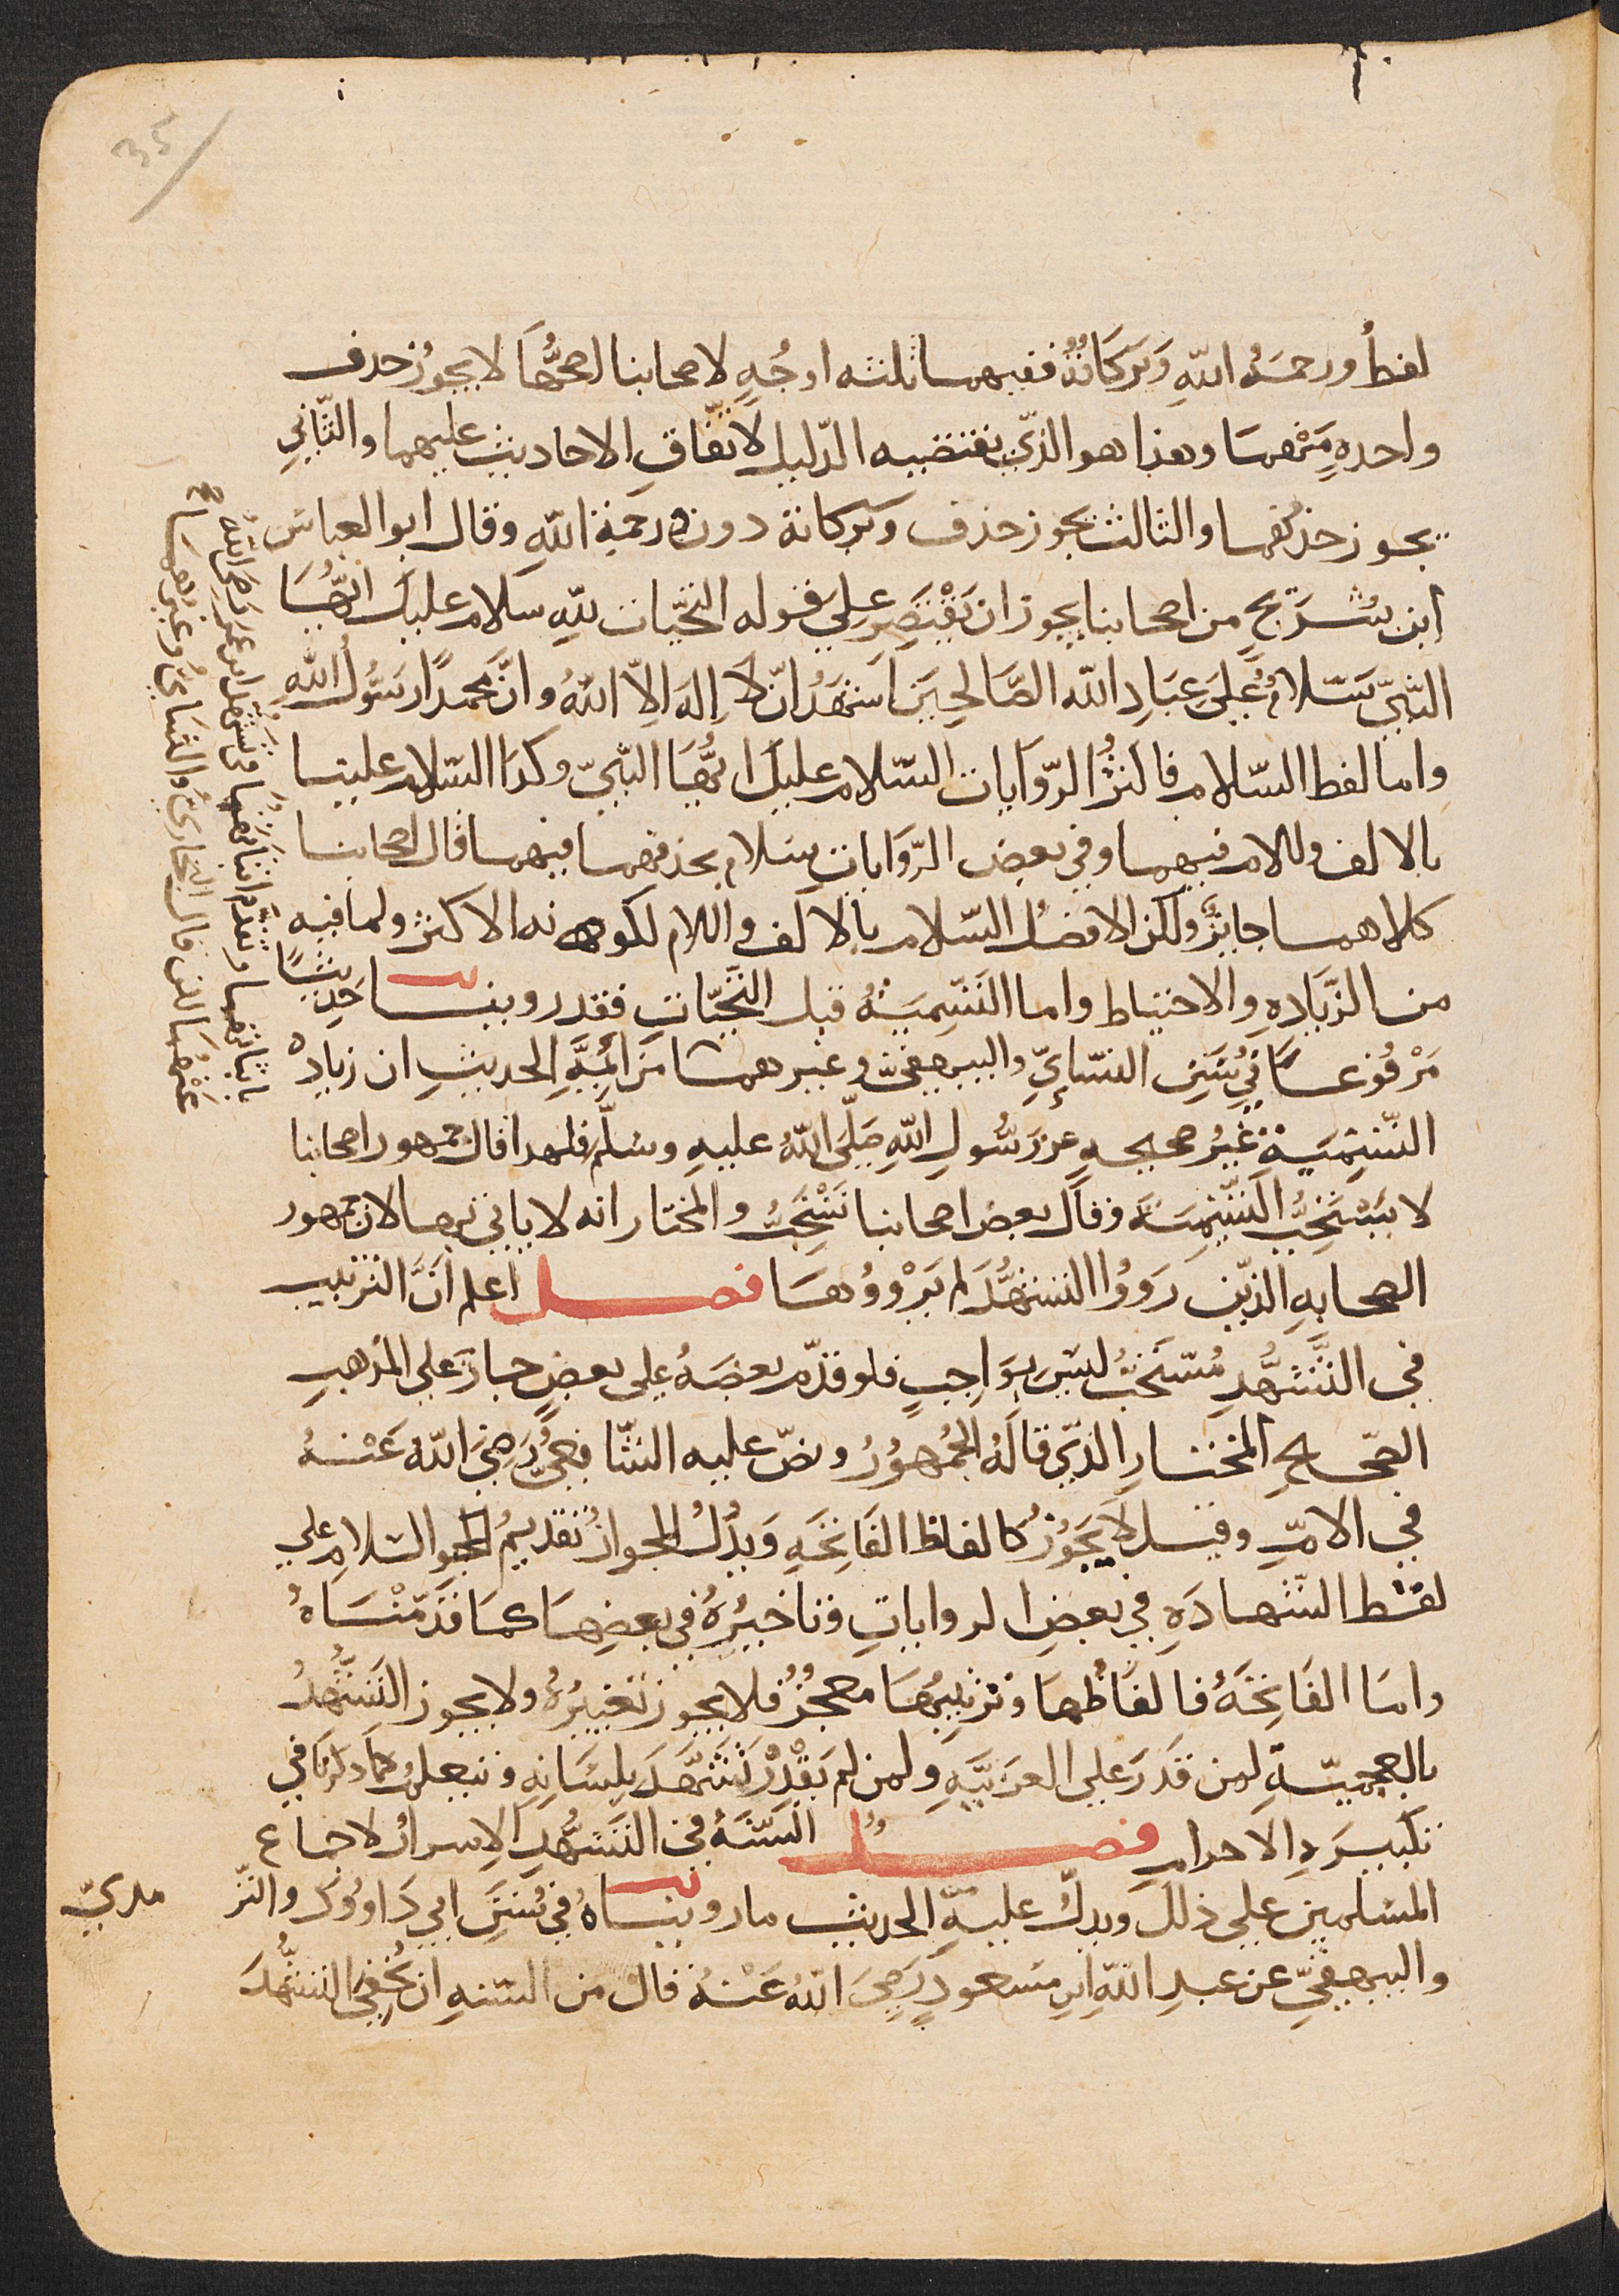 35
لفظُ ورحمةُ اللهِ وَبَرَكَاتُهُ ففيهما ثلثه اوجُهٍ لاصحابنا اصحُّها لا يجوزُ حذف
واحدهٍ مِنْهما وهذا هو الذّي يقتضيه الدّليل لاتّفاقِ الاحاديثِ عليهما والثّاني
يجوز حذفهما والثالث يجوز حذف وبركاته دون ورحمة اللهِ وقال ابو العباس
ابن سُرَيجٍ من اصحابنا يجوز ان يَقْتَصِر علي قوله التحيّات للهِ سلام عليك ايُّها
النّبيّ سَلامٌ عَلَى عِبَادِ الله الصَّالحِينَ اَشهَدُ انّ لاَ اِلهَ الاّ اللهُ وانَّ محمدًا رسُولُ اللهِ
واما لفظ السّلام فاكثرُ الرّوايات السّلام عليك ايُّها النّبيّ وكذا السّلام علينا
بالالف واللام فيهما وفي بعض الرّوَاياتِ سلام بحذفهما فيهما قال اصحابنا
كلاهما جايزٌ ولكن الافضلُ السّلام بالالف واللام لكونه الاكثر ولما فيه
من الزِّيادهِ والاحتياط واما التّسميَةُ قبل التّحيّاتِ فقد روينا حَدِيثًا
مَرْفُوعًا في سُنَنِ النسّايِّ والبيهقيّ وغيرهما مَن ايُمَّهِ الحديثِ ان زيادهْ
التّسميَةِ غيرُ صحيحهٍ عن رَسُولِ اللهِ صَلّى اللهُ عليهِ وسَلّم فلهذا قال جمهور اصحابنا
لا يَسْتَحِبُّ التّسميَة وقال بعض اصحابنا تَسْتَحِبُّ والمختار انه لا ياتي بها لان جمهور
الصحابهِ الذّين رَوَوُا التشهُّدَ لم يَرْوُوهَا فصل اعلم انَّ الترتيب
في التَّشهُّدِ مُسْتَحَبٌّ ليسَ بِوَاجِبٍ فلو قدّم بعضَهُ على بعضٍ جاز على المذهبِ
الصّحيح المختارِ الذّي قَالَهُ الجُمْهورُ ونصّ عليه الشّافِعيُّ رَضِيَ اللهُ عَنْهُ
في الامّ وقيل لاَ يجُوزُ كالفاظ الفَاتحَهِ وَيدُلُ للجواز تقديمُ السلام علي
لفظ الشّهادَهِ في بعضِ الروايات وتاخيرُهُ في بعضِها كما قدّمْنَاهُ
وامّا الفَاتحَةُ فالفَاظُها وترتيبُها معجزٌ فلا يجوز تغييرُهُ ولا يجوز التَشهُّدُ
بالعجميّةِ لمن قَدَرَ علي العربيّهِ ولمن لم يَقْدِرْ تَشَهَّدَ بِلسَانِهِ ويتعلم كما ذكرنا في
تكبيرهِ الاحرام فصلٌ السّنّةُ في التّشهُّدِ الاسرارُ لاجماع
المسلمين على ذلك ويدلُّ عليهِ الحديث ما رويناهُ في سُنَنِ ابي دَاوُود والتر مذيّ
والبيهقيِّ عن عبدِ اللهِ ابنِ مسعودٍ رَضِيَ اللهُ عَنْهُ قال من السّنهِ ان يُخفيَ التّشهُّدَ
باثباتهما وتقدم اثباتهما من تشهد ابن عمر رضى الله
عَنْهُمَا لكن قال البخاريُّ والنسَايُّ وغيرهما